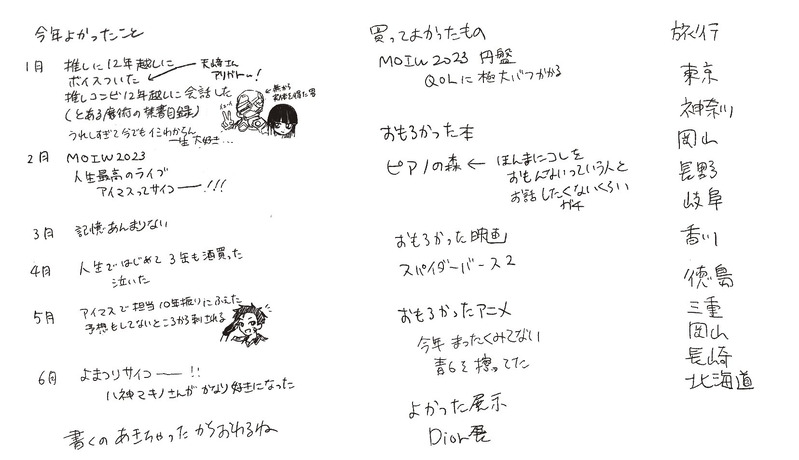 今年よかったこと
1月 推しに12年越しに
ボイスついた ← 天﨑さん
アリガトー!
推しコンビ12年越しに会話した
(とある魔術の禁書目録)
無から
実体を得た男
イエーイ
うれしすぎて今でもイミわからん
一生大好き…
2月 MOIW2023
人生最高のライブ
アイマスってサイコー!!!
3月 記憶あんまりない
4月 人生ではじめて3缶も酒買った
泣いた
5月 アイマスで担当10年振りにふえた
予想もしてないところから刺される
6月 よまつりサイコー!!
八神マキノさんがかなり好きになった
書くのあきちゃったからおわるね
買ってよかったもの
MOIW 2023 円盤
QOLに極大バフかかる
おもろかった本
ピアノの森 ← ほんまにコレを
おもんないっていう人と
お話したくないくらい
ガチ
おもろかった映画
スパイダーバース2
おもろかったアニメ
今年まったくみてない
青6を擦ってた
よかった展示
Dior展
旅行
東京
神奈川
岡山
長野
岐阜
香川
徳島
三重
岡山
長崎
北海道